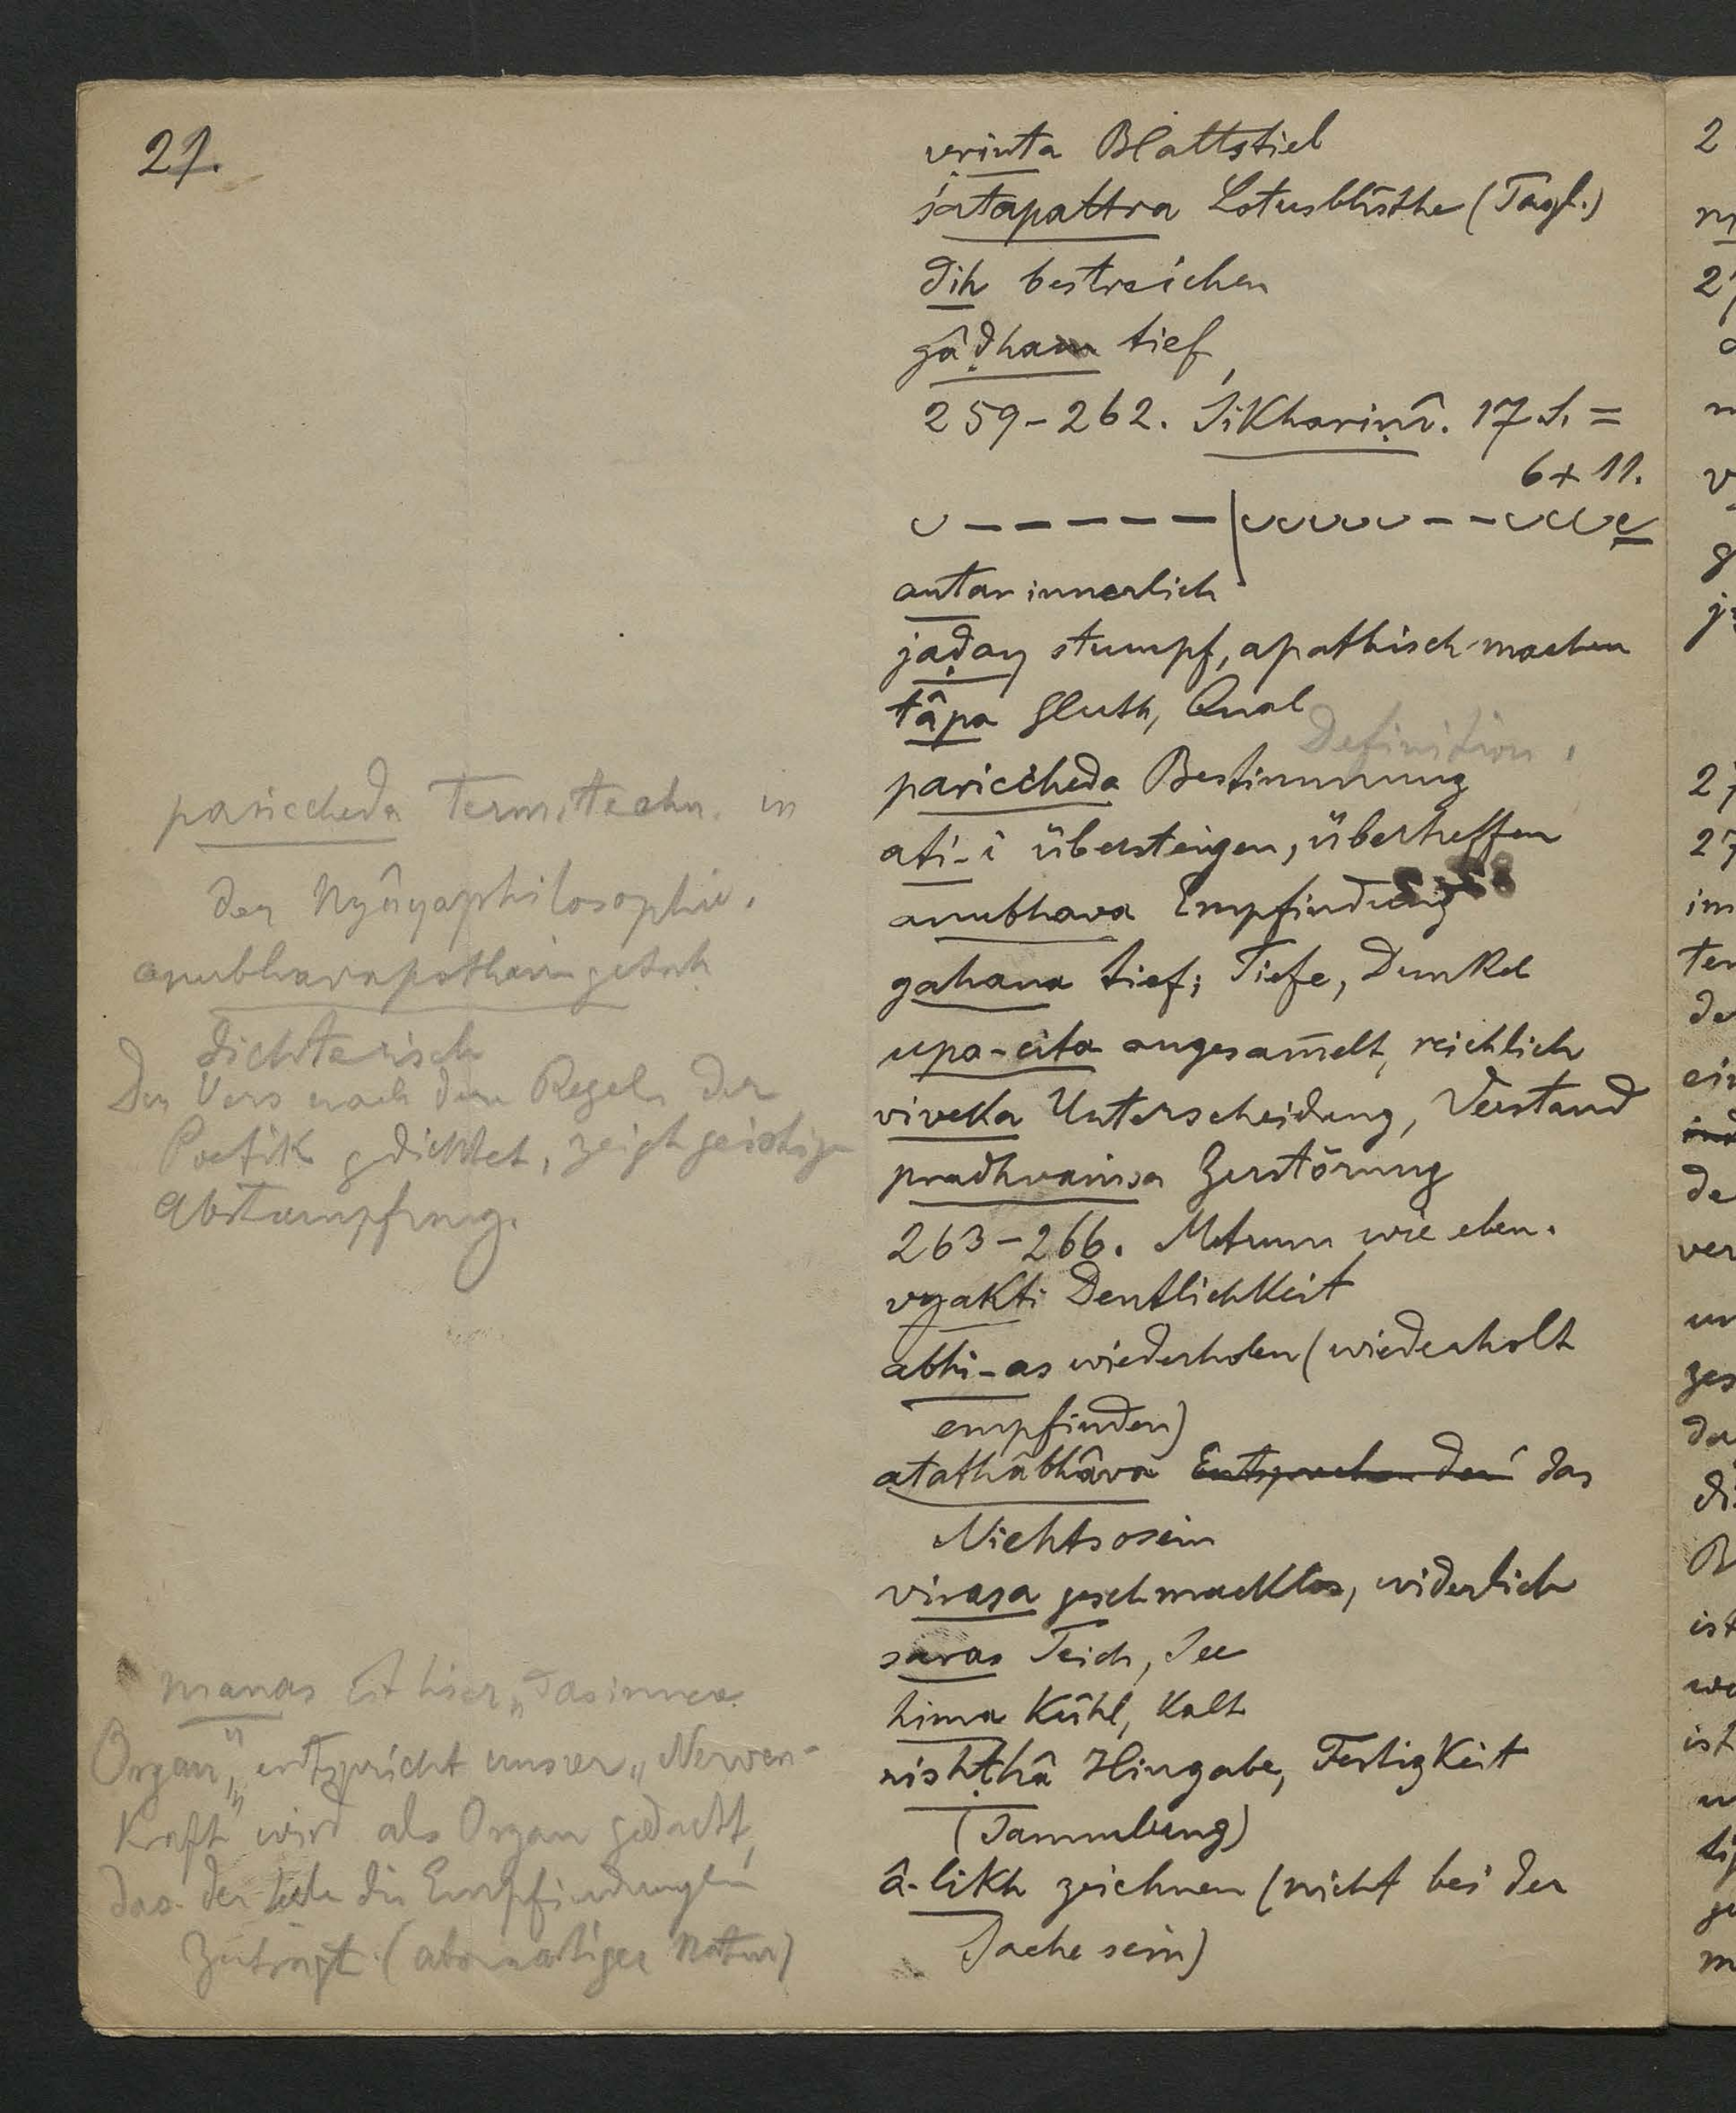 21.
vrinta Blattstiel
śatapattra Lotusblüthe (Tagl.)
dih bestreichen
gâḍham tief
259-262. Śikhariṇî. 17 S. =
6 + 11.
⏑ – – – – – | ⏑⏑⏑⏑⏑ – – ⏑⏑⏑⏑
antar innerlich
jaḍay stumpf, apathisch machen
tâpa Gluth, Qual
Definition.
pariccheda Bestimmung
ati-i übersteigen, übertreffen
anubhava Empfindung
gahana tief; Tiefe, Dunkel
upa-cita angesam̄elt, reichlich
viveka Unterscheidung, Verstand
pradhvaṁsa Zerstörung
263-266. Metrum wie eben.
vyakti Deutlichkeit
abhi-as wiederholen (wiederholt
empfinden)
atathâbhâva das
Nichtsosein
virasa geschmacklos, widerlich
saras Teich, See
hima Kühl, Kalt
nishṭhâ Hingabe, Festigkeit
(Sammlung)
â-likh zeichnen (nicht bei der
Sache sein)
pariccheda Term. techn. in
der Nyâyaphilosophie.
anubhavapatham
dichterisch
Der Vers nach den Regeln der
Poetik gedichtet, zeigt geistige
Abstumpfung.
manas ist hier „das innere
Organ", entspricht unsrer „Nerven-
Kraft" wird als Organ gedacht,
das der Seele die Empfindungen
zuträgt (atomartiger Natur)